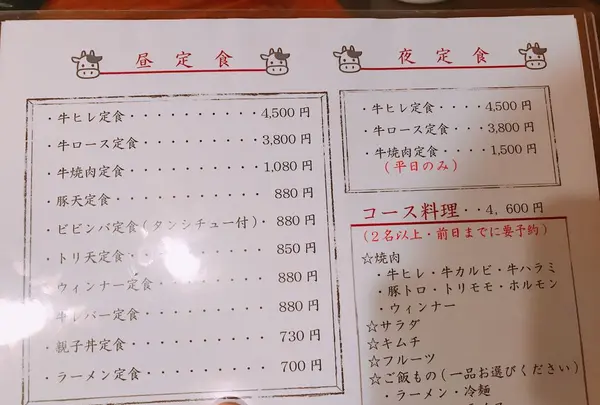 昼定食
・牛ヒレ定食・・・・・・・・・・4,500円
・牛ロース定食・・・・・・・・・3,800円
・牛焼肉定食・・・・・・・・・・1,080円
・豚天定食・・・・・・・・・・・880円
・ビビンバ定食(タンシチュー付)・880円
・トリ天定食・・・・・・・・・・850円
・ウィンナー定食・・・・・・・・880円
・牛レバー定食・・・・・・・・・880円
・親子丼定食・・・・・・・・・・730円
・ラーメン定食・・・・・・・・・700円
夜定食
・牛ヒレ定食・・・・4,500円
・牛ロース定食・・・3,800円
・牛焼肉定食・・・・1,500円
(平日のみ)
コース料理・・4,600円
(2名以上・前日までに要予約)
☆焼肉
・牛ヒレ・牛カルビ・牛ハラミ
・豚トロ・トリモモ・ホルモン
・ウィンナー
☆サラダ
☆キムチ
☆フルーツ
☆ご飯もの(一品お選びください)
・ラーメン・冷麺